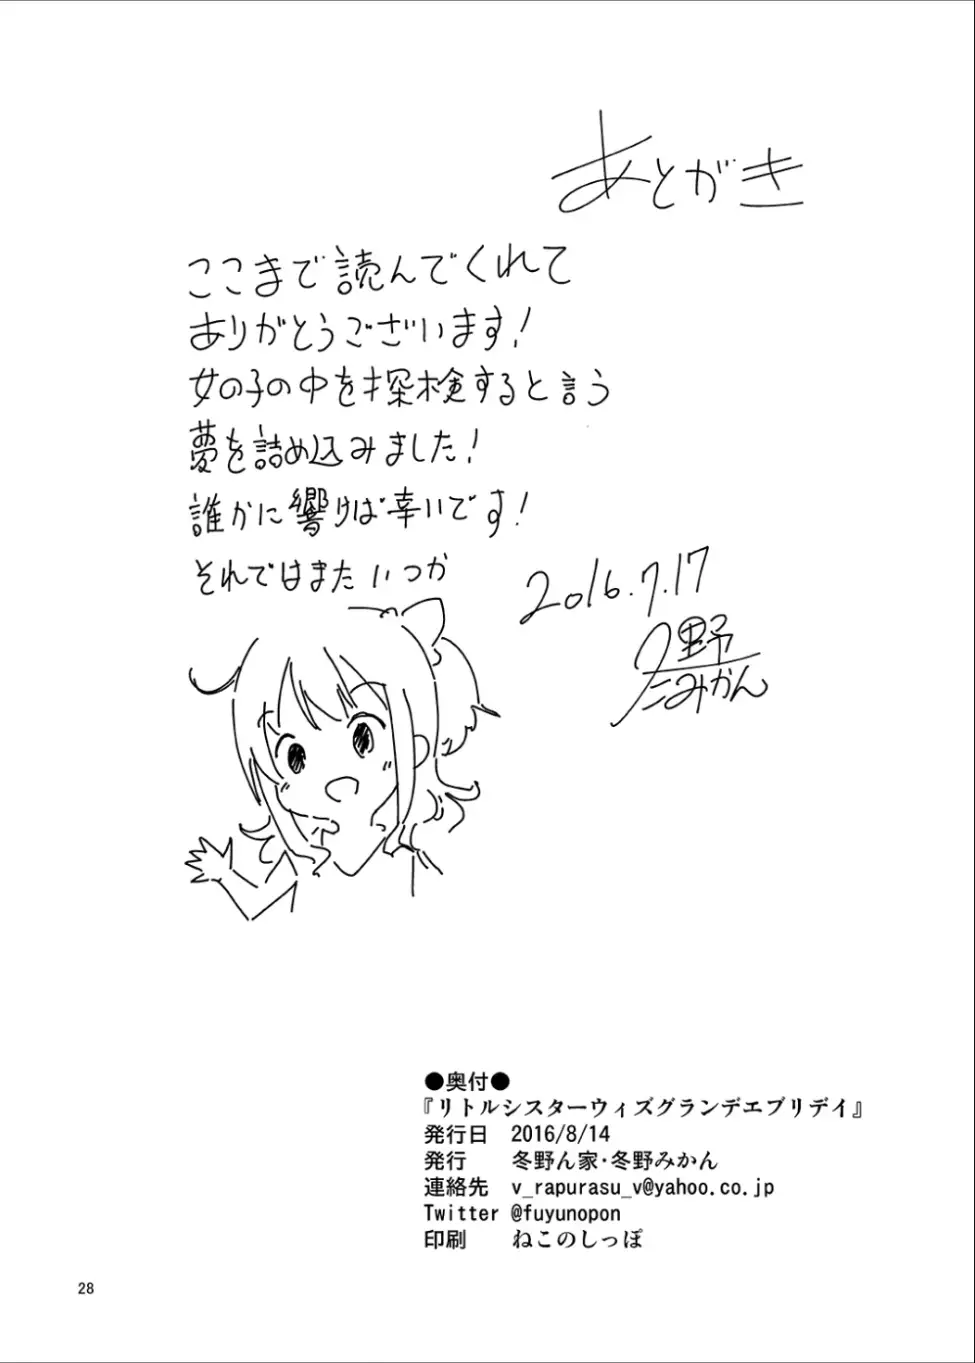 あとがき
ここまで読んでくれて
ありがとうございます!
女の子の中を探検すると言う
夢を詰め込みました!
誰かに響けば幸いです!
それではまたいつか
2016.7.17
冬野
みかん
●奥付●
『リトルシスターウィズグランデエブリデイ』
発行日 2016/8/14
発行 冬野ん家・冬野みかん
連絡先 v_rapurasu_v@yahoo.co.jp
Twitter @fuyunopon
印刷 ねこのしっぽ
28